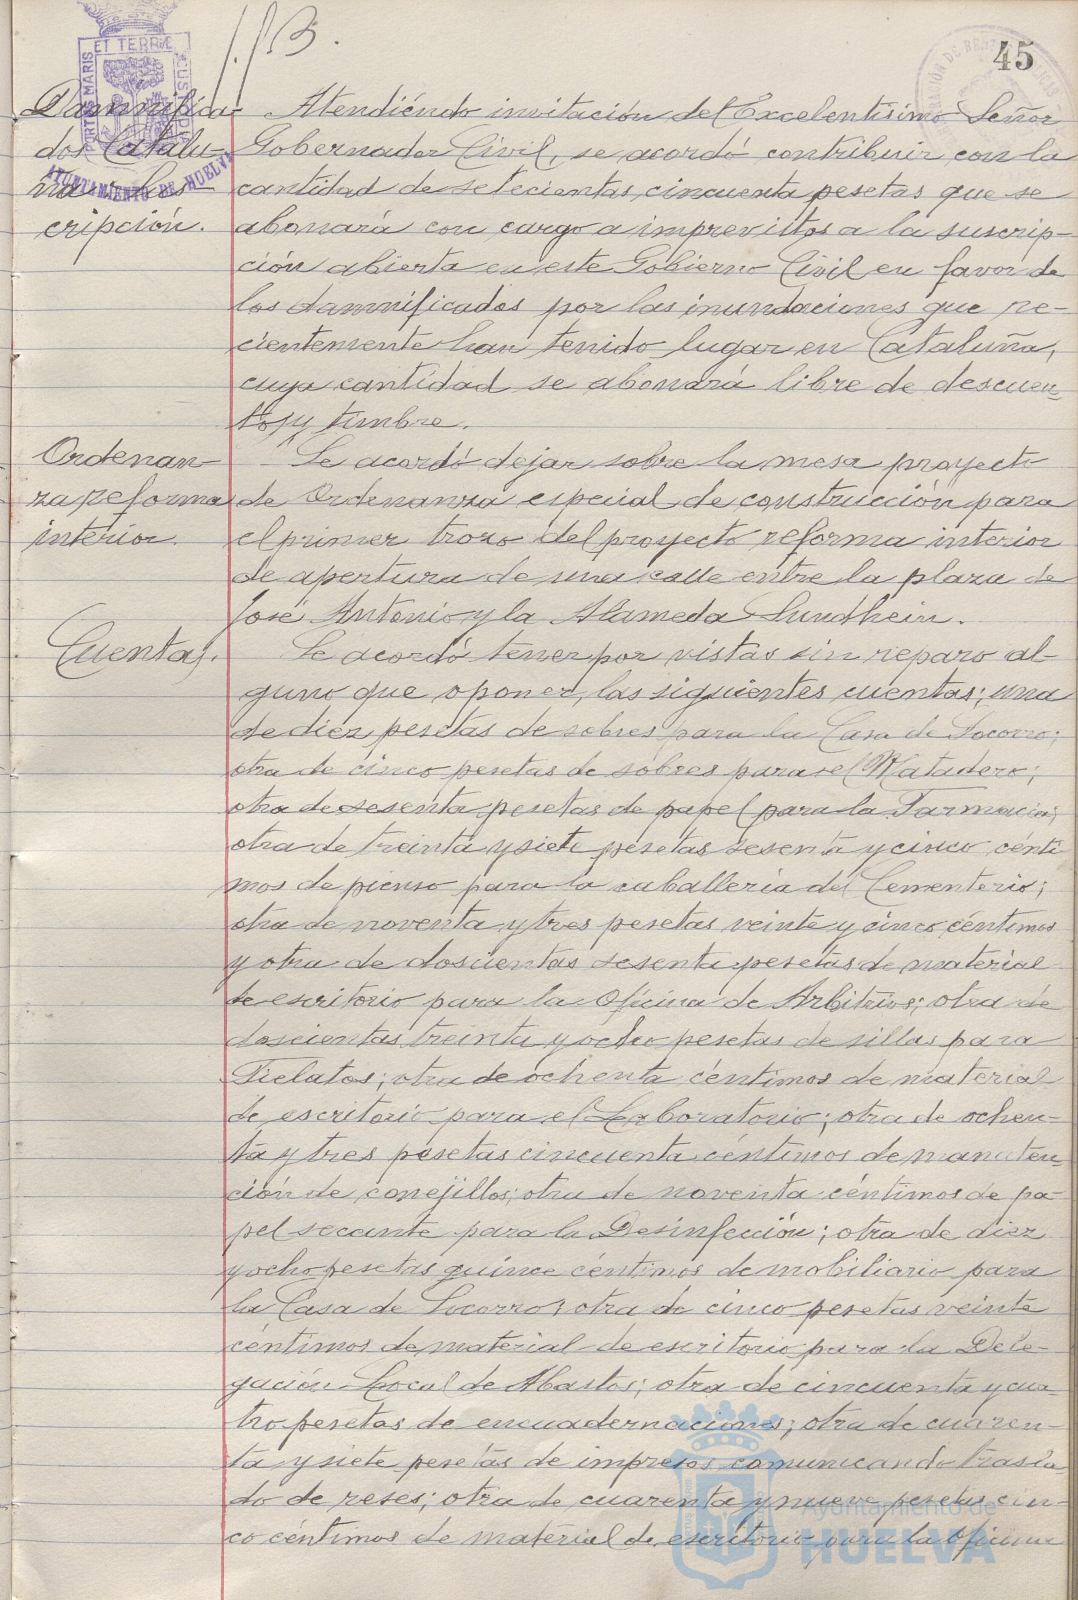 45
PORTUS MARIS ET TERRÆ CUSTODIA
AYUNTAMIENTO DE HUELVA
Damnifica-
dos Catalu-
ña
cripción.
Atendiéndo invitación del Excelentísimo Señor
Gobernador Civil, se acordó contribuir con la
cantidad de setecientas cincuenta pesetas que se
abonará con cargo a imprevistos a la suscrip-
ción abierta en este Gobierno Civil en favor de
los damnificados por las inundaciones que re-
cientemente han tenido lugar en Cataluña,
cuya cantidad se abonará libre de descuen-
tos y timbre.
Ordenan-
za reforma
interior.
Se acordó dejar sobre la mesa proyecto
de Ordenanza especial de construcción para
el primer trozo del proyecto reforma interior
de apertura de una calle entre la plaza de
José Antonio y la Alameda Sundhein.
Cuentas.
Se acordó tener por vistas sin reparo al-
guno que oponer, las siguientes cuentas; una
de diez pesetas de sobres para la Casa de Socorro;
otra de cinco pesetas de sobres para el Matadero;
otra de sesenta pesetas de papel para la Farmacia;
otra de treinta y siete pesetas sesenta y cinco cénti
mos de pienso para la caballería del Cementerio;
otra de noventa y tres pesetas veinte y cinco céntimos
y otra de doscientas sesenta pesetas de material
de escritorio para la Oficina de Arbitrios; otra de
doscientas treinta y ocho pesetas de sillas para
Fielatos; otra de ochenta céntimos de material
de escritorio para el Laboratorio; otra de ochen-
ta y tres pesetas cincuenta céntimos de manuten-
ción de conejillos; otra de noventa céntimos de pa-
pel secante para la Desinfección; otra de diez
y ocho pesetas quince céntimos de mobiliario para
la Casa de Socorro; otra de cinco pesetas veinte
céntimos de material de escritorio para la Dele-
gación Local de Abastos; otra de cincuenta y cua-
tro pesetas de encuadernaciones; otra de cuaren-
ta y siete pesetas de impresos comunicando trasla-
do de reses; otra de cuarenta y nueve pesetas cin-
co céntimos de material de escritorio para la oficina
Ayuntamiento de
HUELVA